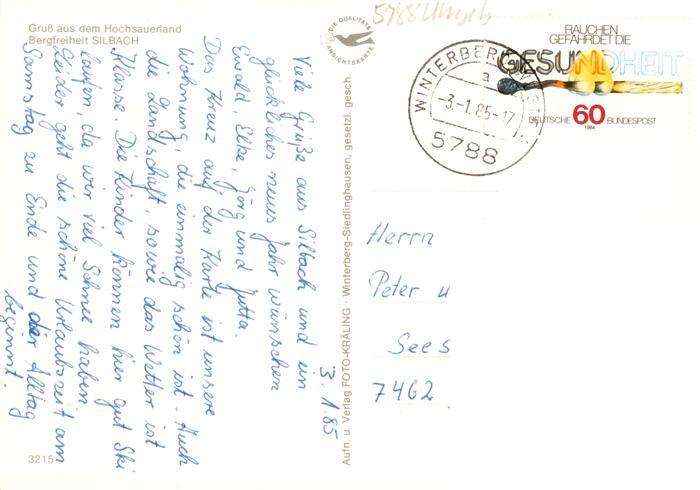 Gruß aus dem Hochsauerland
Bergfreiheit SILBACH
3215
3.1.85
Viele Grüße aus Silbach und ein
glückliches neues Jahr wünschen
Ewald, Elke, Jörg und Jutta.
Das Kreuz auf der Karte ist unsere
Wohnung, die einmalig schön ist. Auch
die Landschaft, sowie das Wetter ist
Klasse. Die Kinder können hier gut Ski
laufen, da wir viel Schnee haben.
Leider geht die schöne Urlaubszeit am
Samstag zu Ende und der Alltag
beginnt.
DIE QUALITÄTS
ANSICHTSKARTE
Aufn. u. Verlag FOTO-KRÄLING · Winterberg-Siedlinghausen, gesetzl. gesch.
5788
WINTERBERG
a
-3.-1.85-17
5788
RAUCHEN
GEFÄHRDET DIE
GESUNDHEIT
DEUTSCHE 60 BUNDESPOST
1984
Herrn
Peter u
Sees
7462